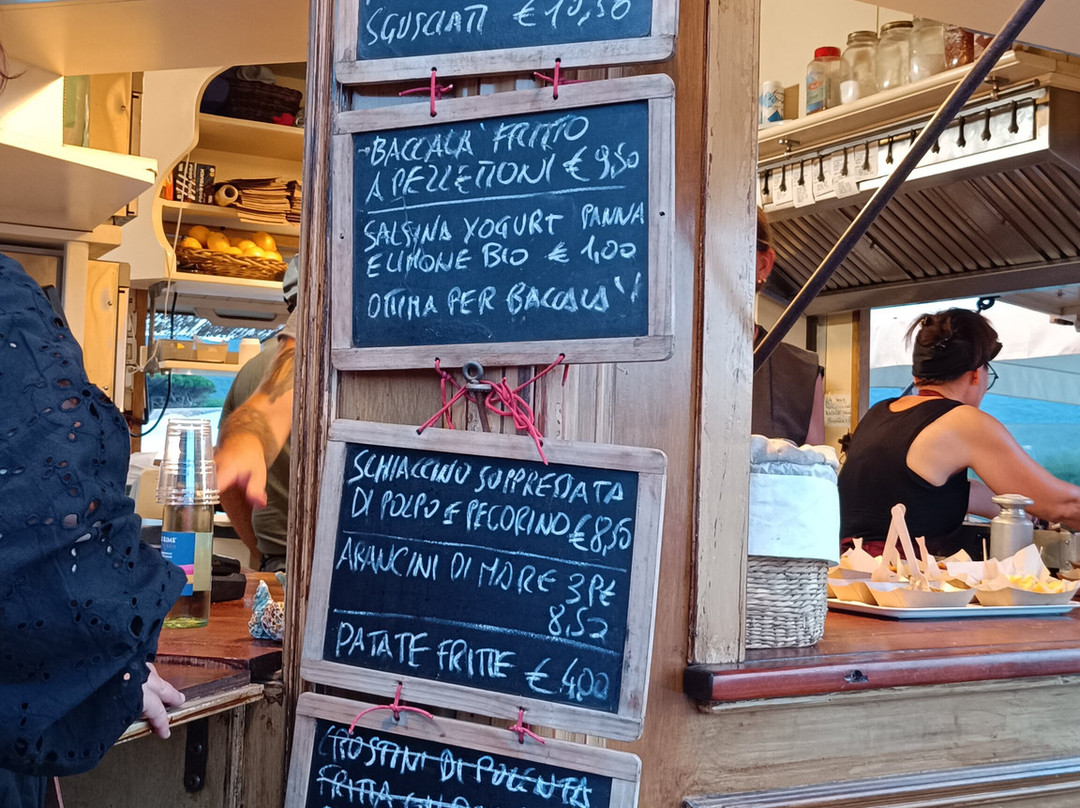 SGUSCIATI €10,50
BACCALA' FRITTO
A PEZZETTONI €9,50
SALSINA YOGURT PANNA
E LIMONE BIO € 1,00
OTTIMA PER BACCALA'!
SCHIACCINO SOPPRESSATA
DI POLPO E PECORINO €8,50
ARANCINI DI MARE 3PZ
8,50
PATATE FRITTE €4,00
CROSTINI DI POLENTA
FRITTA